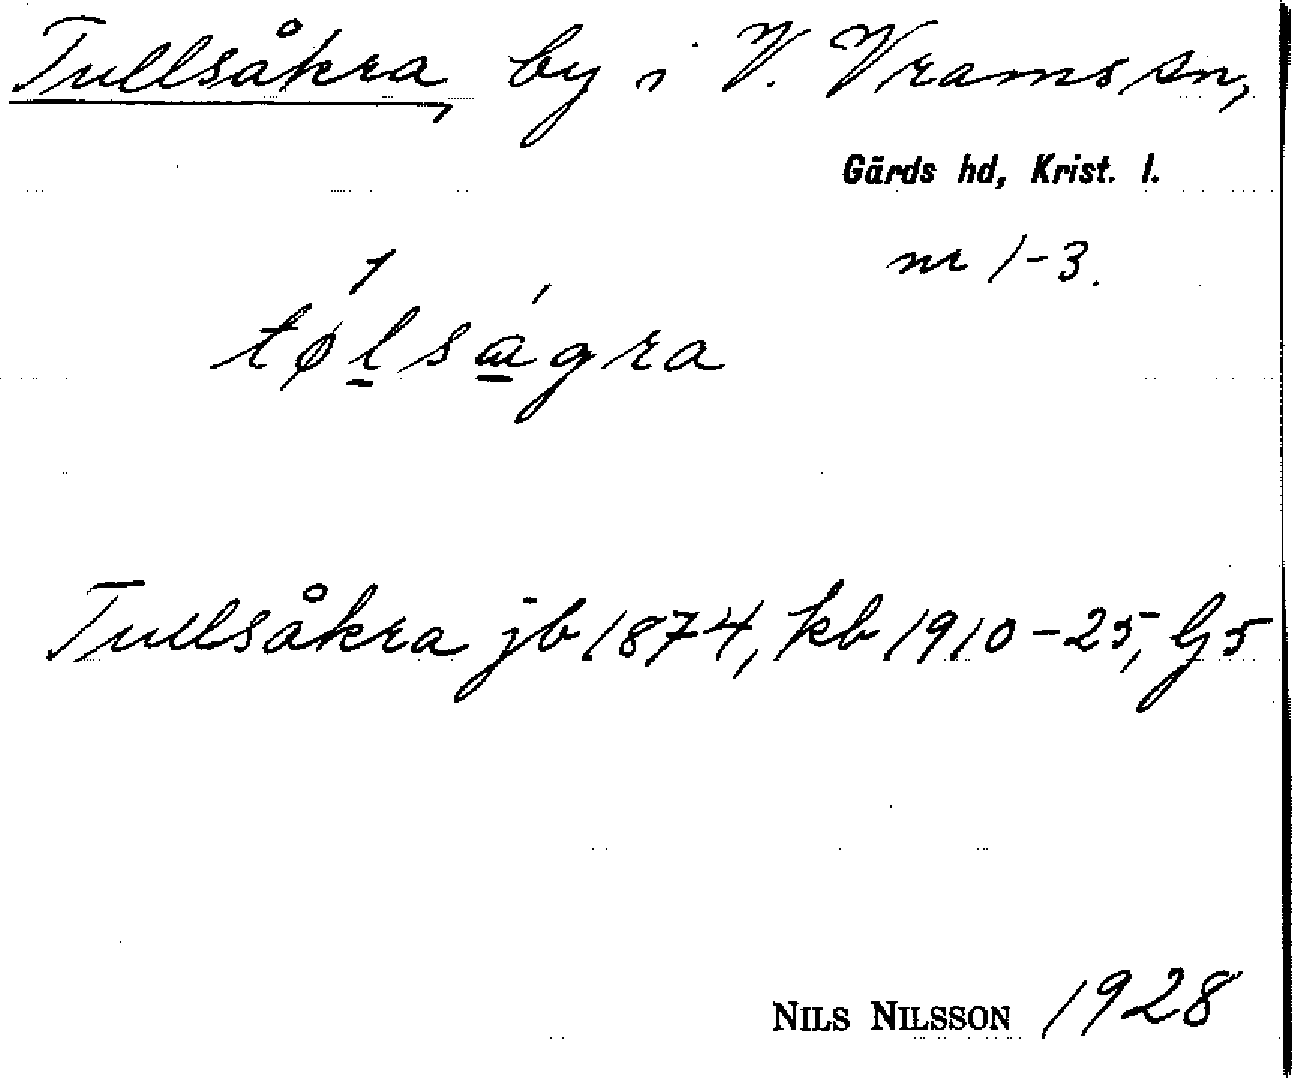 Tullsåkra, by i V. Vrams sn,
Gärds hd, Krist. l.
nr 1-3.
tølsagra
Tullsåkra jb 1874, kb 1910-25, G5
NILS NILSSON 1928